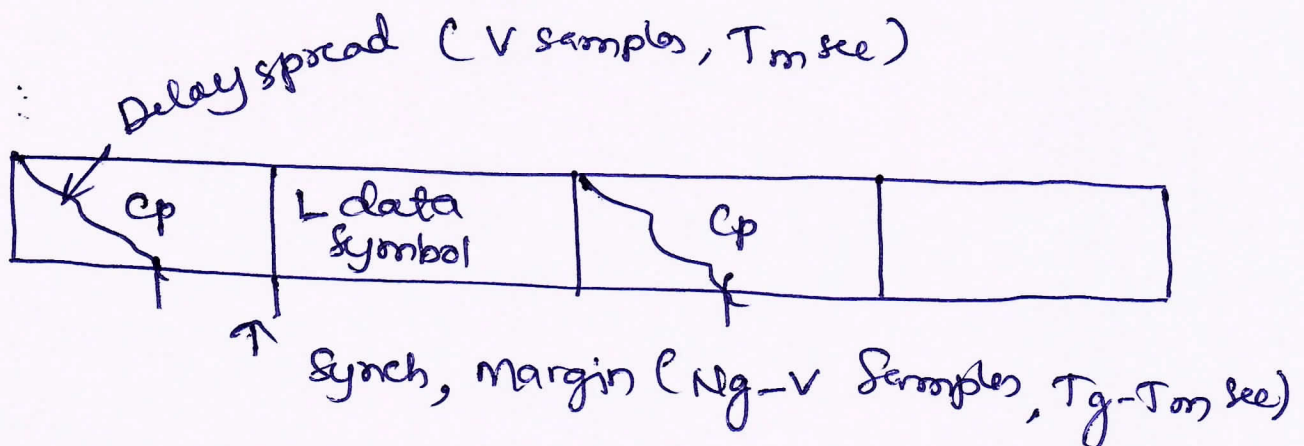 Delay spread (V samples, Tm sec)
Cp
L data
symbol
Cp
Synch, margin (Ng-V Samples, Tg-Tm sec)